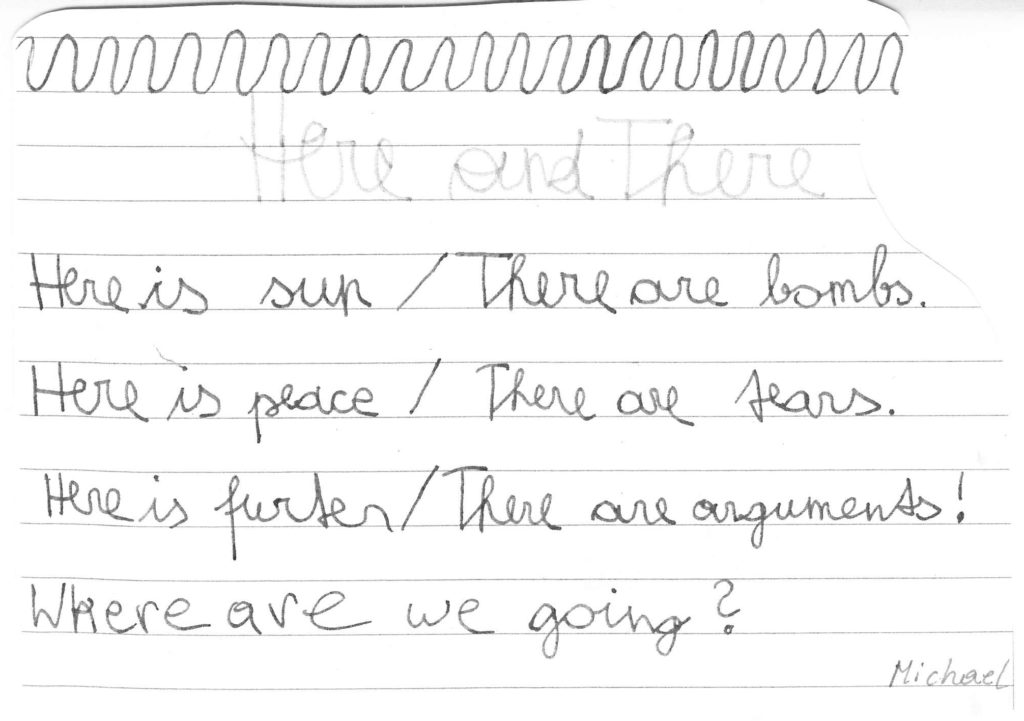 Here and There
Here is sun / There are bombs.
Here is peace / There are tears.
Here is furter / There are arguments!
Where are we going?
Michael